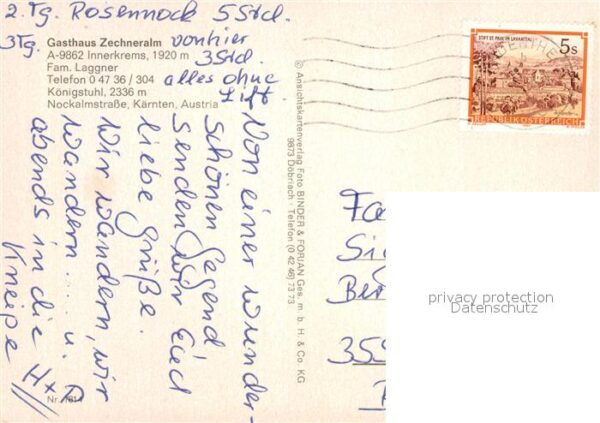 2. Tg. Rosennock 5 Std.
3 Tg.
Gasthaus Zechneralm
A-9862 Innerkrems, 1920 m
Fam. Laggner
Telefon 0 47 36 / 304
Königstuhl, 2336 m
Nockalmstraße, Kärnten, Austria
von hier
3 Std.
alles ohne
Lift
Von einer wunder-
schönen Gegend
senden wir Euch
liebe Grüße.
Wir wandern, wir
wandern .... u.
abends in die
Kneipe
Nr. 1814
© Ansichtskartenverlag Foto BINDER & FORIAN Ges. m. b. H. & Co. KG
9873 Döbriach · Telefon (0 42 46) 73 73
STIFT ST. PAUL IM LAVANTTAL
5s
REPUBLIK ÖSTERREICH
Fa
Si
Be
355
privacy protection
Datenschutz